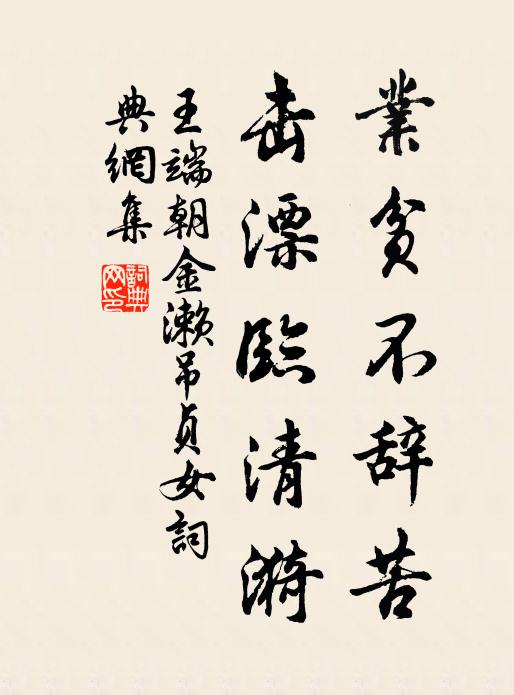 業貧不辞苦
击漂臨清漪
王端朝金濑吊貞女詞
典網集
詞典网印